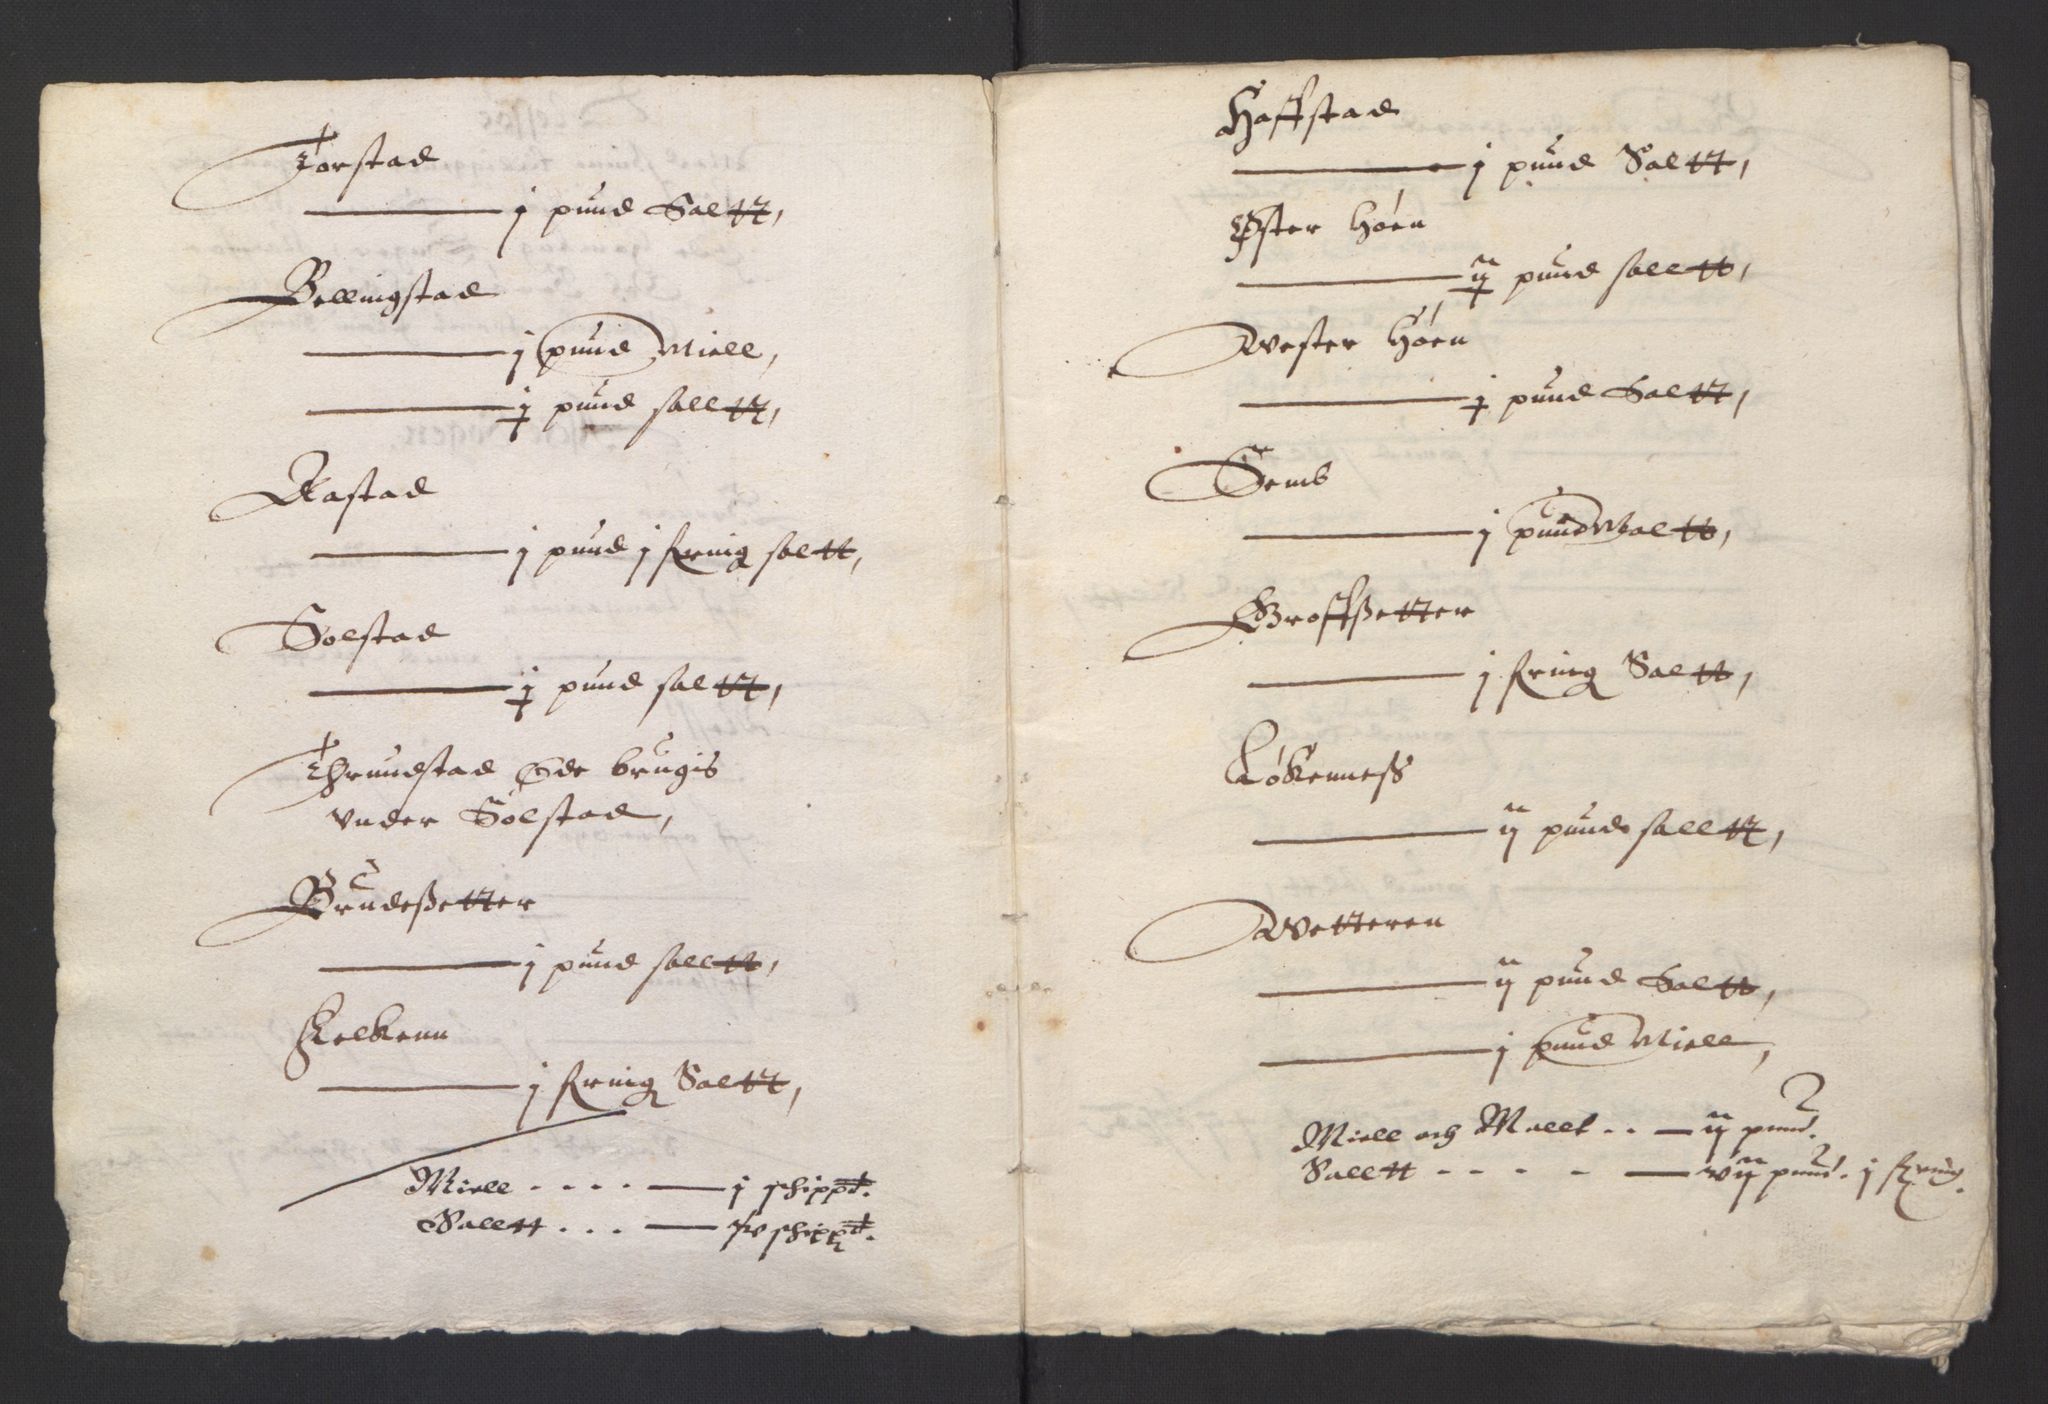 Torstad
j pund Saltt,
Bellingstad
j pund Miell,
j pund salltt,
Rastad
j pund j fring saltt,
Solstad
j pund saltt,
Thrundstad Øde brugis
vnder Solstad,
Brudeßetter
j pund salltt,
Kelkenn
j fring Saltt,
Miell . . . . j schippd.
Salltt . . . schippd.
Haffstad
j pund Saltt,
Øster Höen
ij pund salltt,
Wester Höen
j pund Saltt,
Semb
j pund Maltt,
Groffßetter
j fring Saltt,
Løkenneß
ij pund salltt,
Wetteren
ij pund Saltt,
j pund Miell,
Miell och Mallt . . ij pund.
Salltt - - - - vij pund. j fring.